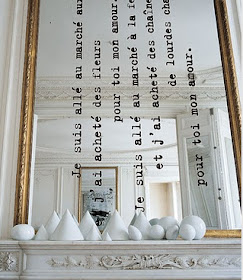 Je suis allé au marché au
'ai acheté des fleurs
pour toi mon amour.
Je suis allé au marché à la fe
et j'ai acheté des chaîne
de lourdes cha
pour toi mon amour.